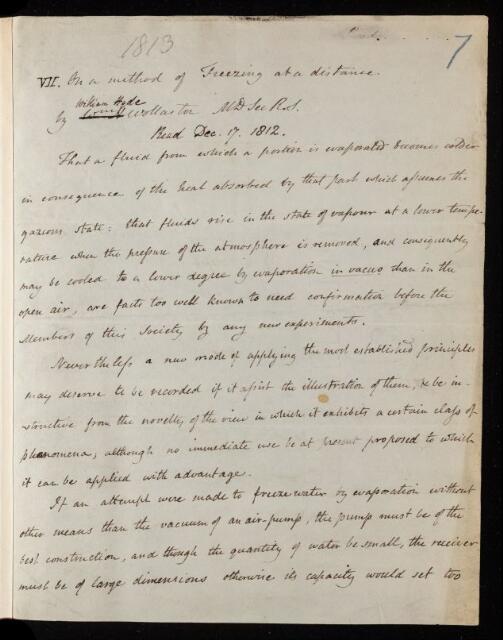 1813
7
VII. On a method of Freezing at a distance.
William Hyde
by Wollaston MD Sec R.S.
Read Dec. 17. 1812.
That a fluid from which a portion is evaporated becomes colder
in consequence of the heat absorbed by that part which assumes the
gazeous state: that fluids rise in the state of vapour at a lower tempe-
rature when the pressure of the atmosphere is removed, and consequently
may be cooled to a lower degree by evaporation in vacuo than in the
open air, are facts too well known to need confirmation before the
Members of this Society by any new experiments.
Nevertheless a new mode of applying the most established principles
may deserve to be recorded if it assist the illustration of them, & be in-
structive from the novelty of the view in which it exhibits a certain class of
phænomena, although no immediate use be at present proposed to which
it can be applied with advantage.
If an attempt were made to freeze water by evaporation without
other means than the vacuum of an air-pump, the pump must be of the
best construction, and though the quantity of water be small, the receiver
must be of large dimensions otherwise its capacity would set too